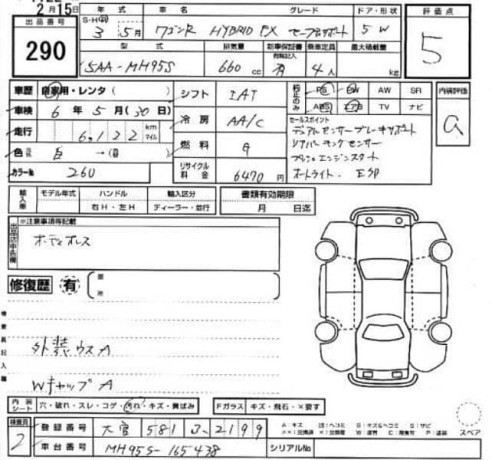 2月15日
年式 グレード ドア・形状 評価点
出品番号 S・H㊵ 3 年 5月 ワゴンR HYBRID FX セーフティサポート 5W 5
290 型式 排気量 新車保証書 乗車定員 最大積載量
5AA-MH95S 660 cc 有 4人 kg
車歴 自家用・レンタ シフト IAT PS PW AW SR 内装評価
車検 6年 5月(30日) 冷房 AA/C ABS エアB TV ナビ a
走行 6,122 km マイル 燃料 G セールスポイント
デュアルセンサーブレーキサポート
リアパーキングセンサー
プッシュエンジンスタート
オートライト ESP
色 白 →(白)
カラーNo 260 リサイクル料金 6470円
輸入車 モデル年式 ハンドル 輸入区分 書類有効期限
年 右H・左H ディーラー・並行 月 日迄
※注意事項等記載
オーディオレス
修復歴 有
検査員記入欄
外装ウスA
WキャップA
内装シート 穴・破れ・スレ・コゲ・汚れ・キズ・黄ばみ Fガラス キズ・飛石・×要す スペア
検査員 2 登録番号 大宮 581 ろ 2199
車台番号 MH95S-165438 シリアルNo